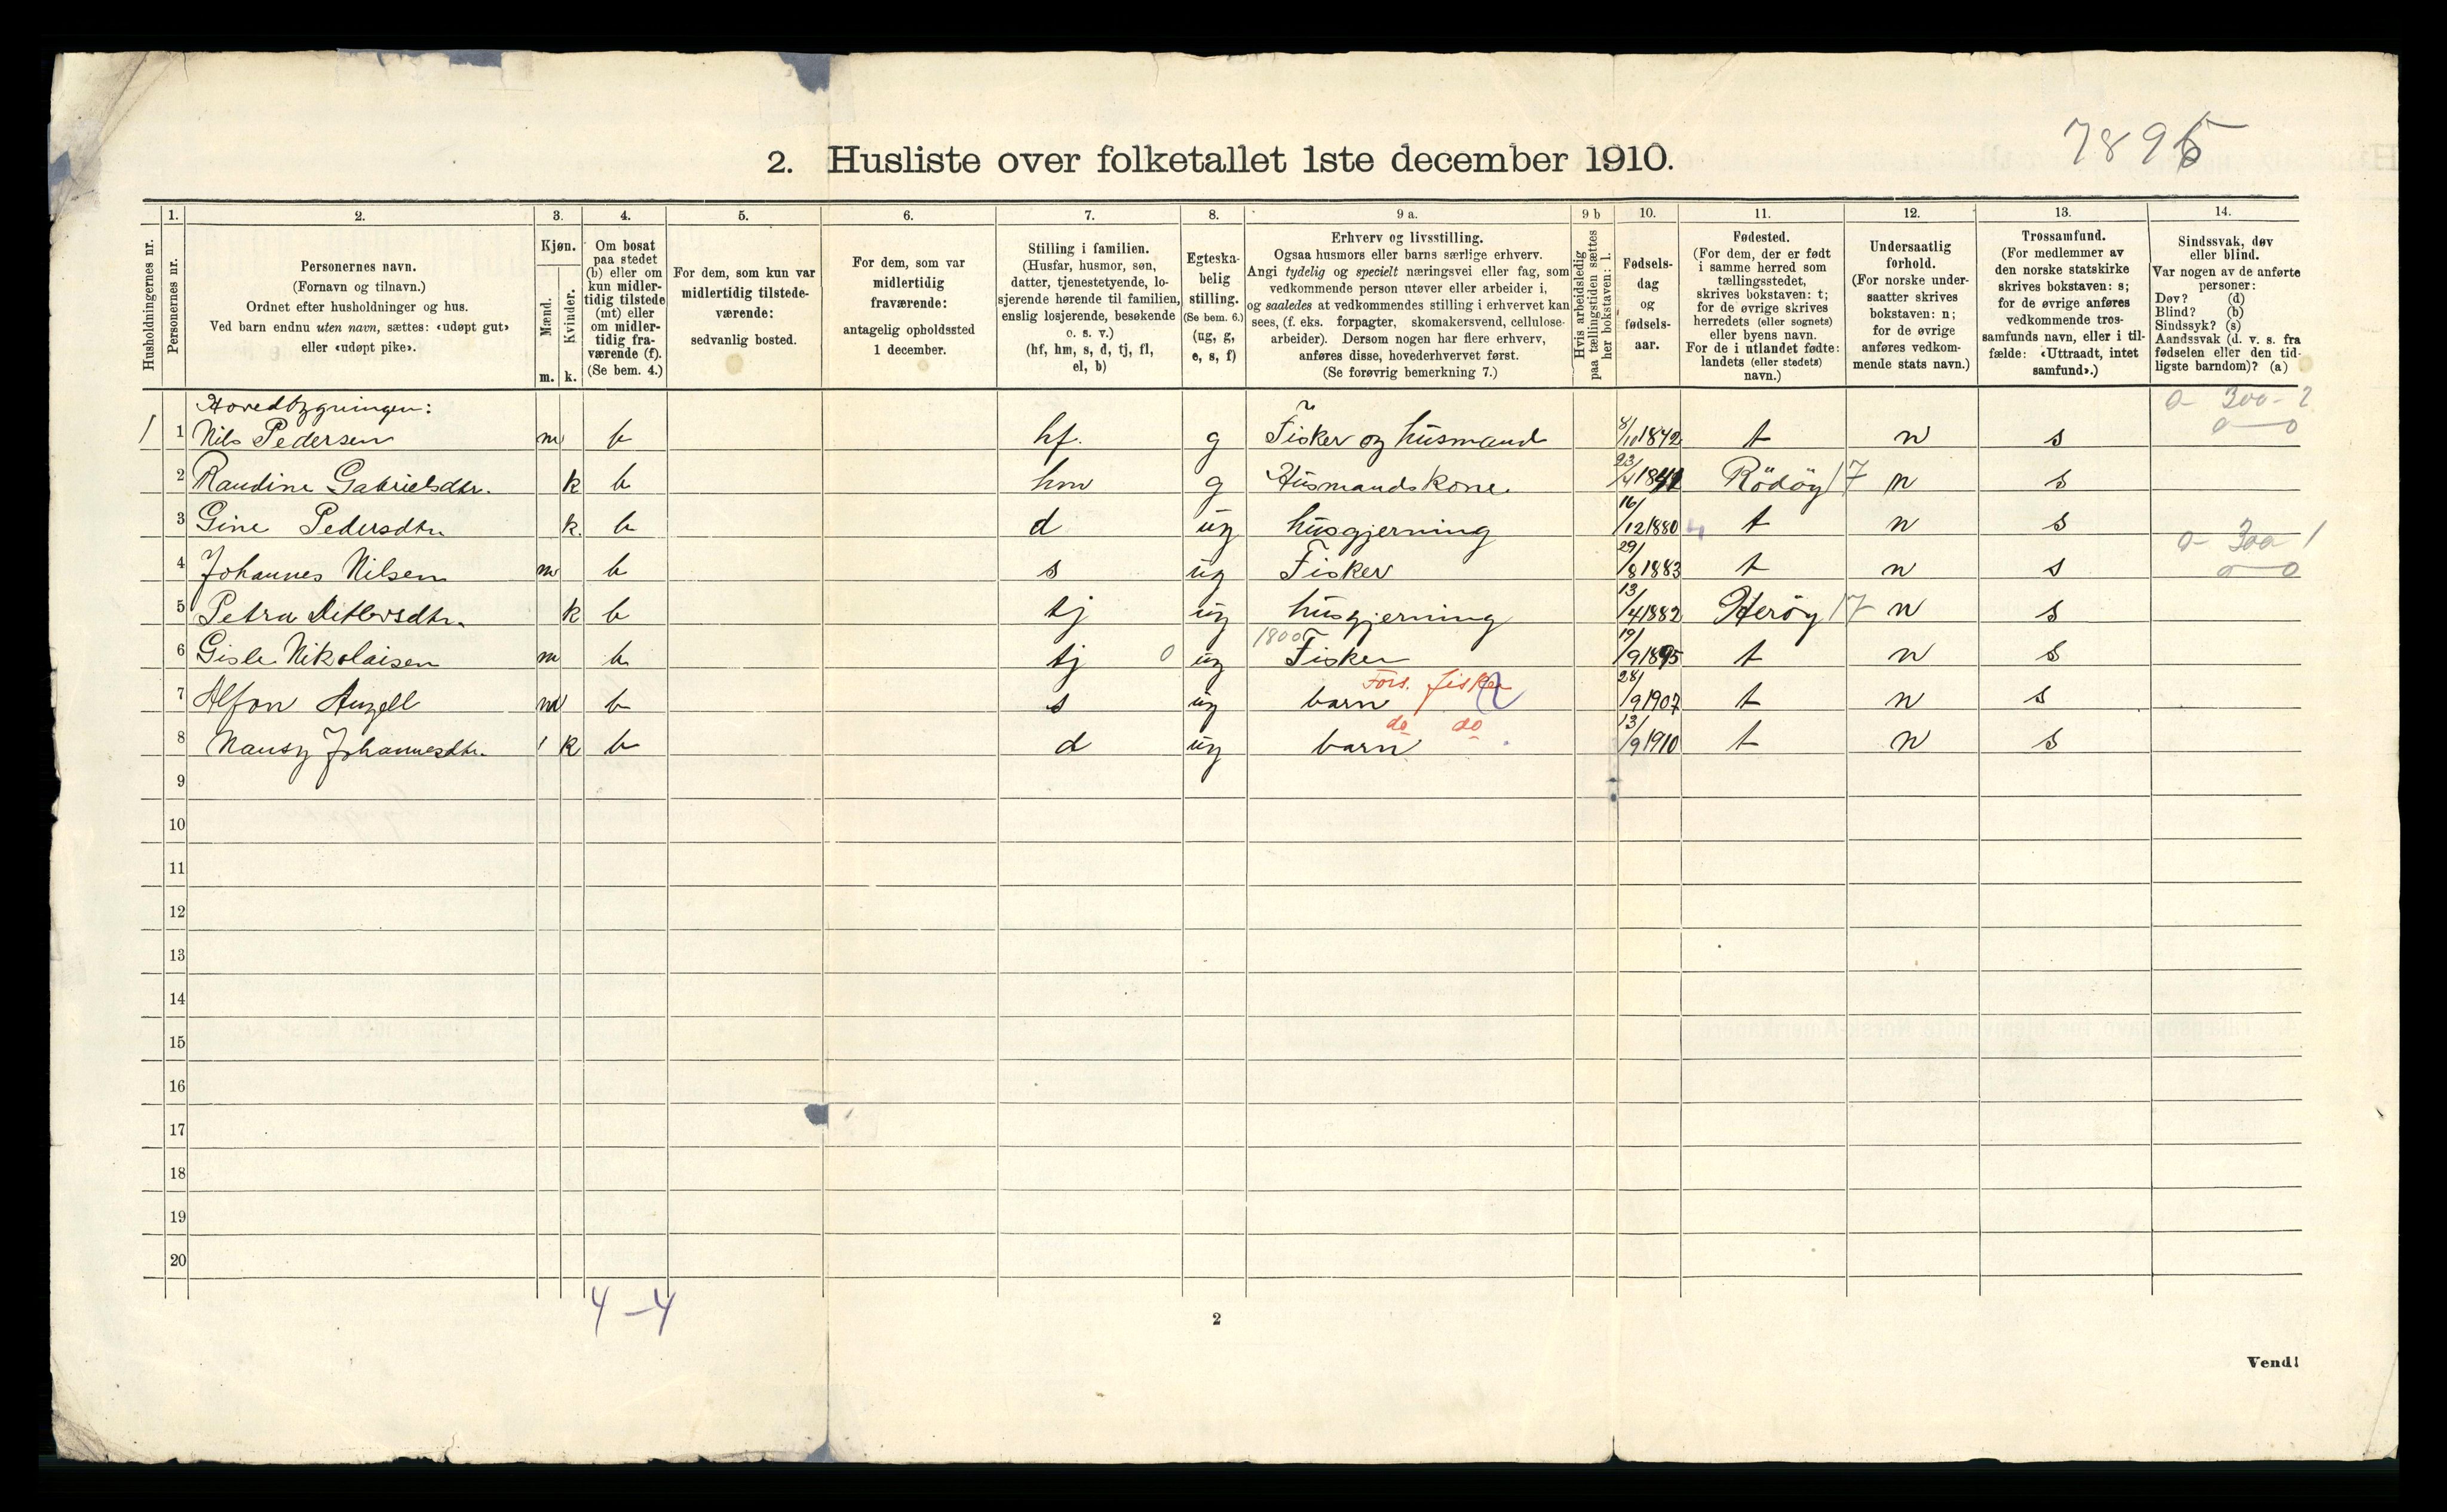 7895
2. Husliste over folketallet 1ste december 1910.
Husholdningernes nr.
1.
Personernes nr.
2.
Personernes navn.
(Fornavn og tilnavn.)
Ordnet efter husholdninger og hus.
Ved barn endnu uten navn, sættes: «udøpt gut»
eller «udøpt pike».
3.
Kjøn.
Mænd.
Kvinder.
m. k.
4.
Om bosat
paa stedet
(b) eller om
kun midler-
tidig tilstede
(mt) eller
om midler-
tidig fra-
værende (f).
(Se bem. 4.)
5.
For dem, som kun var
midlertidig tilstede-
værende:
sedvanlig bosted.
6.
For dem, som var
midlertidig
fraværende:
antagelig opholdssted
1 december.
7.
Stilling i familien.
(Husfar, husmor, søn,
datter, tjenestetyende, lo-
sjerende hørende til familien,
enslig losjerende, besøkende
o. s. v.)
(hf, hm, s, d, tj, fl,
el, b)
8.
Egteska-
belig
stilling.
(Se bem. 6.)
(ug, g,
e, s, f)
9 a.
Erhverv og livsstilling.
Ogsaa husmors eller barns særlige erhverv.
Angi tydelig og specielt næringsvei eller fag, som
vedkommende person utøver eller arbeider i,
og saaledes at vedkommendes stilling i erhvervet kan
sees, (f. eks. forpagter, skomakersvend, cellulose-
arbeider). Dersom nogen har flere erhverv,
anføres disse, hovederhvervet først.
(Se forøvrig bemerkning 7.)
9 b
Hvis arbeidsledig
paa tællingstiden sættes
her bokstaven: l.
10.
Fødsels-
dag
og
fødsels-
aar.
11.
Fødested.
(For dem, der er født
i samme herred som
tællingsstedet,
skrives bokstaven: t;
for de øvrige skrives
herredets (eller sognets)
eller byens navn.
For de i utlandet fødte:
landets (eller stedets)
navn.)
12.
Undersaatlig
forhold.
(For norske under-
saatter skrives
bokstaven: n;
for de øvrige
anføres vedkom-
mende stats navn.)
13.
Trossamfund.
(For medlemmer av
den norske statskirke
skrives bokstaven: s;
for de øvrige anføres
vedkommende tros-
samfunds navn, eller i til-
fælde: «Uttraadt, intet
samfund».)
14.
Sindssvak, døv
eller blind.
Var nogen av de anførte
personer:
Døv? (d)
Blind? (b)
Sindssyk? (s)
Aandssvak (d. v. s. fra
fødselen eller den tid-
ligste barndom)? (a)
Hovedbygningen:
0- 300- 2
1 1 Nils Pedersen m b hf. g Fisker og husmand 8/10 1842 t n s 0—0
2 Raudine Gabrielsdtr. k b hm g Husmandskone. 23/4 1841 Rödöy 17 n s
3 Gine Pedersdtr k. b d ug husgjerning 16/12 1880 t n s
0- 300 1
4 Johannes Nilsen m b s ug Fisker 29/8 1883 t n s 0—0
5 Petra Ditlevsdtr. k b tj ug husgjerning 13/4 1882 Herøy 17 n s
1800
6 Gisle Nikolaisen m b tj 0 ug Fisker 19/9 1895 t n s
Fors. fisker
7 Alfon Angell m b s ug barn 28/9 1907 t n s
do do
8 Nansy Johannesdtr. 1 k b d ug barn 13/9 1910 t n s
9
10
11
12
13
14
15
16
17
18
19
20
4 – 4
2
Vend!